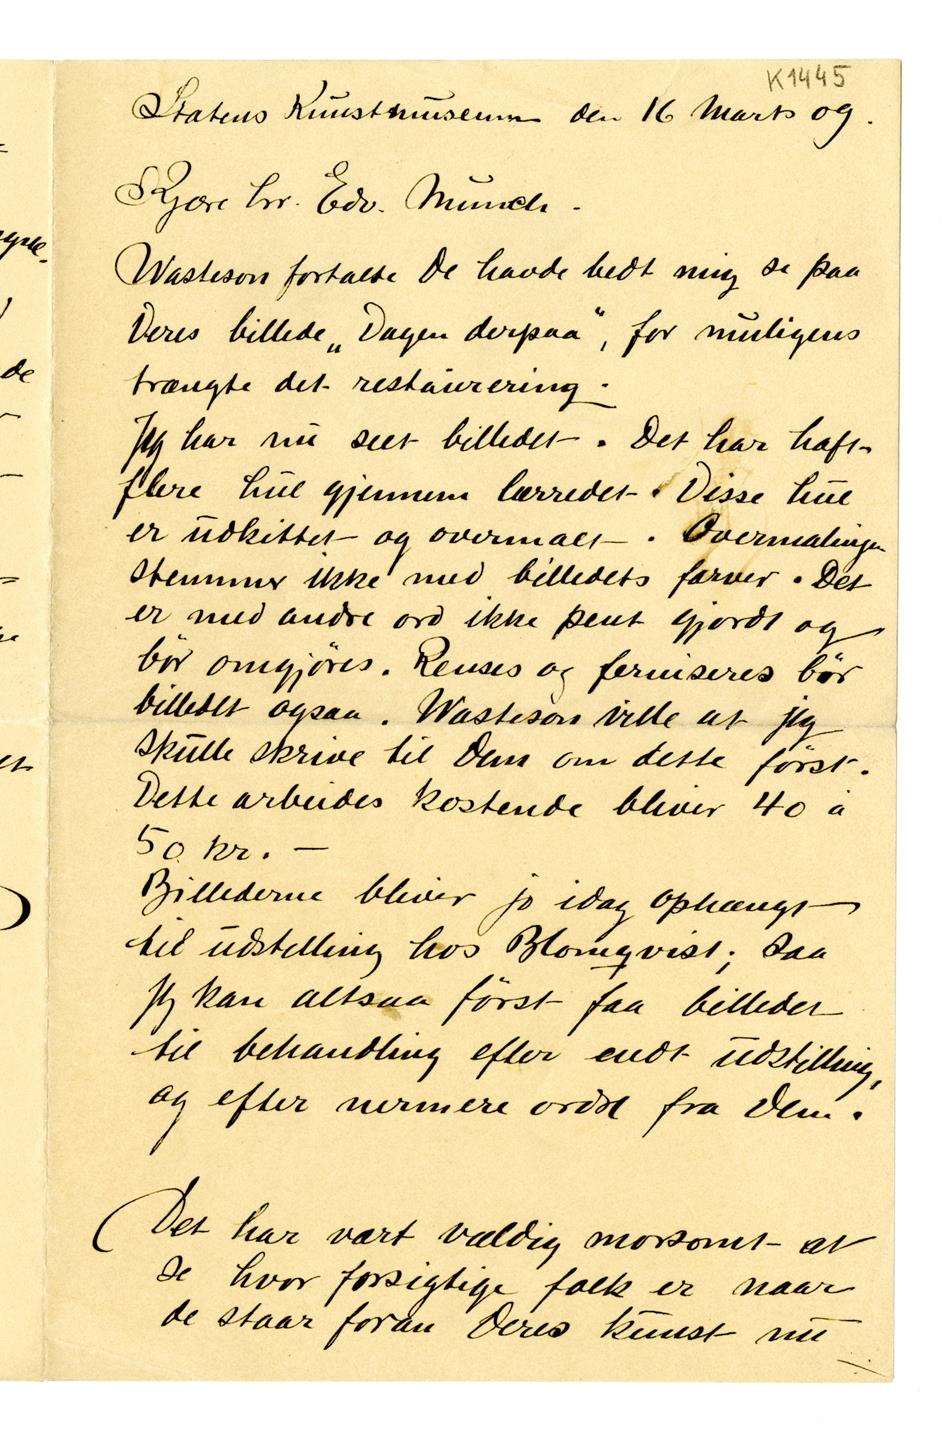 K1445
Statens Kunstmuseum den 16 Marts 09.
Kjære hr. Edv. Munch.
Wasteson fortalte De havde bedt mig se paa
Deres billede „Dagen derpaa“, for muligens
trængte det restaurering.
Jeg har nu seet billedet. Det har haft
flere hul gjennem lærredet. Disse hul
er udkittet og overmalt. Overmalingen
stemmer ikke med billedets farver. Det
er med andre ord ikke pent gjordt og
bör omgjöres. Renses og ferniseres bör
billedet ogsaa. Wasteson ville at jeg
skulle skrive til Dem om dette först.
Dette arbeides kostende bliver 40 à
50 kr. —
Billederne bliver jo idag ophængt
til udstilling hos Blomqvist; saa
jeg kan altsaa först faa billedet
til behandling efter endt udstilling,
og efter nermere ordre fra Dem.
(Det har vært vældig morsomt at
se hvor forsigtige folk er naar
de staar foran Deres kunst nu